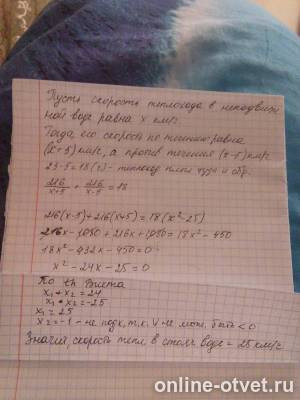 Пусть скорость теплохода в неподвиж-
ной воде равна x км/ч
Тогда его скорость по течению равна
(x+5) км/ч, а против течения (x-5) км/ч
23-5=18(ч)- теплоход плыл туда и обр.
216/x+5 + 216/x-5 = 18
216(x-5)+216(x+5)=18(x²-25)
216x-1080+216x+1080=18x²-450
18x²-432x-450=0
x²-24x-25=0
По th Виета
x₁+x₂=24
x₁*x₂=-25
x₁=25
x₂=-1 - не подх, т.к. V не мож. быть <0
Значит, скорость тепл в стояч воде = 25 км/ч
online-otvet.ru